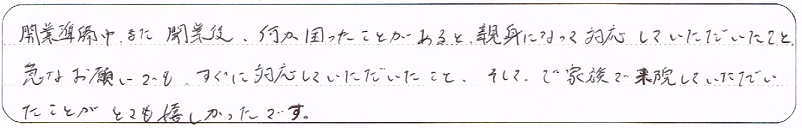 開業準備中、また開業後、何か困ったことがあると、親身になって対応していただいたこと、
急なお願いでも、すぐに対応していただいたこと、そして、ご家族で来院していただい
たことがとても嬉しかったです。